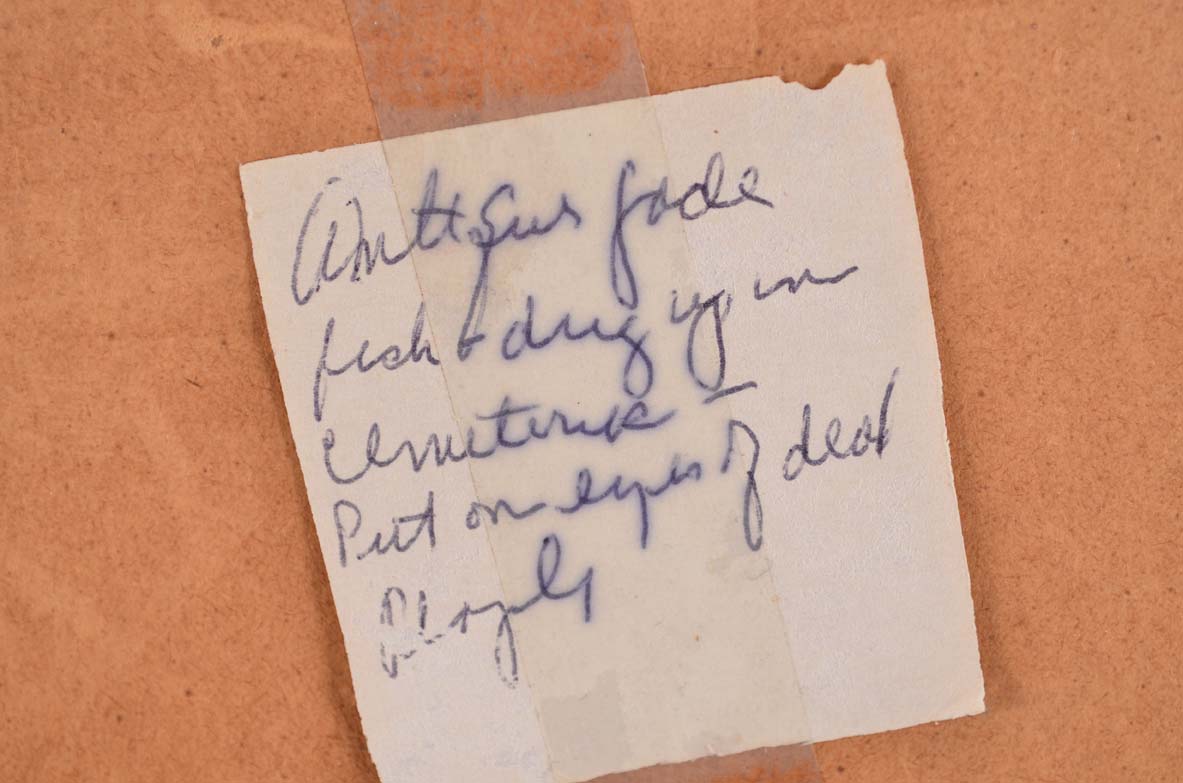 Antique jade
fish & dug up in
Cemeterie –
Put on eyes of dead
People